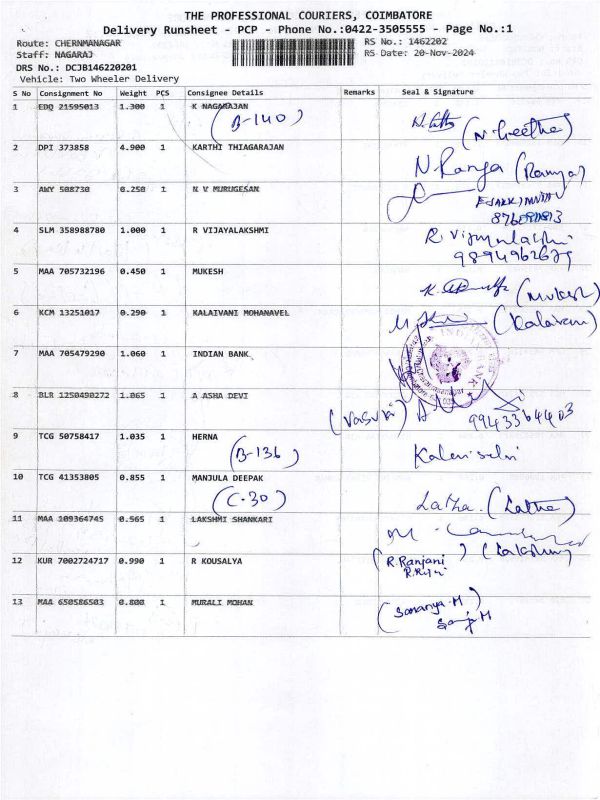 THE PROFESSIONAL COURIERS, COIMBATORE
Delivery Runsheet - PCP - Phone No.:0422-3505555 - Page No.:1
Route: CHERNMANAGAR RS No.: 1462202
Staff: NAGARAJ RS Date: 20-Nov-2024
DRS No.: DCJB146220201
Vehicle: Two Wheeler Delivery
S No Consignment No Weight PCS Consignee Details Remarks Seal & Signature
1 EDQ 21595013 1.300 1 K NAGARAJAN
(B-140) (N. Geetha)
2 DPI 373858 4.900 1 KARTHI THIAGARAJAN
N. Ranga (Ramya)
3 AWY 508730 0.250 1 N V MURUGESAN
4 SLM 358988780 1.000 1 R VIJAYALAKSHMI
R. Vijayalakshmi
9894962679
5 MAA 705732196 0.450 1 MUKESH
(Mukesh)
6 KCM 13251017 0.290 1 KALAIVANI MOHANAVEL
(Kalaivani)
7 MAA 705479290 1.060 1 INDIAN BANK
INDIAN BANK
8 BLR 1250490272 1.065 1 A ASHA DEVI
9943364403
9 TCG 50758417 1.035 1 HERNA
(B-136) Kalaiselvi
10 TCG 41353805 0.855 1 MANJULA DEEPAK
(C-30) Latha. (Latha)
11 MAA 109364745 0.565 1 LAKSHMI SHANKARI
12 KUR 7002724717 0.990 1 R KOUSALYA
(R.Ranjani)
13 MAA 650586503 0.800 1 MURALI MOHAN
(Sowmya.M)